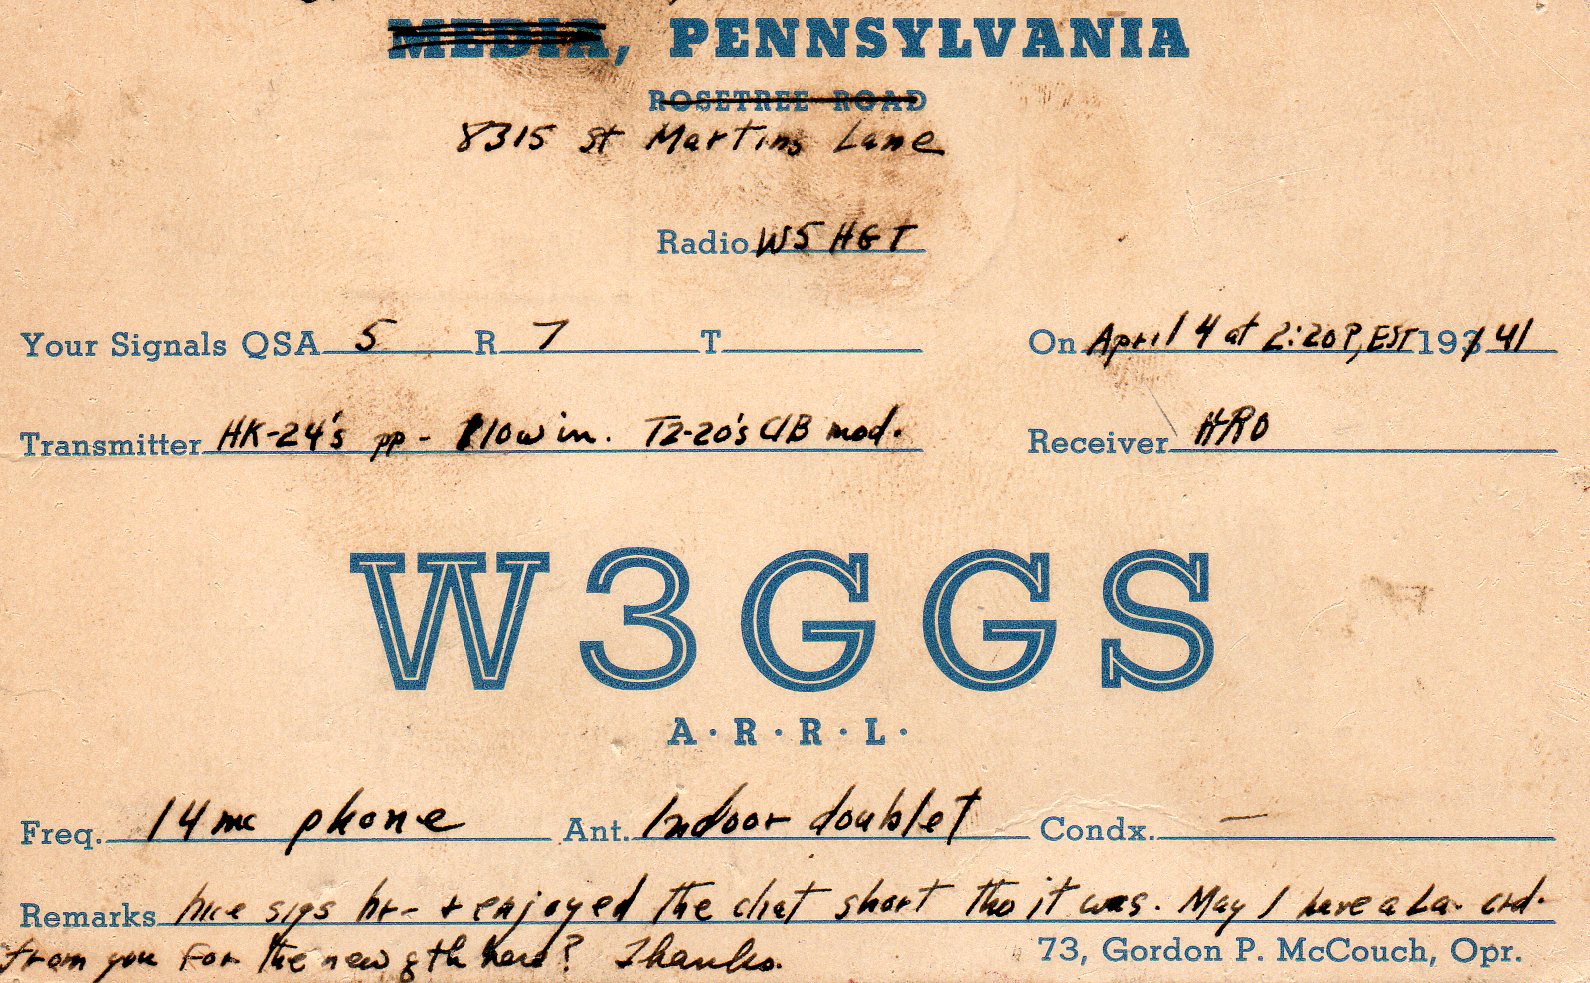 MEDIA, PENNSYLVANIA
ROSETREE ROAD
8315 St Martins Lane
Radio W5HGT
Your Signals QSA 5 R 7 T On April 4 at 2:20 P, EST 193 41
Transmitter HK-24's pp - 110w in. TZ-20's ClB mod. Receiver HRO
W3GGS
A·R·R·L·
Freq. 14 mc phone Ant. Indoor doublet Condx. —
Remarks Nice sigs hr - + enjoyed the chat short tho it was. May I have a La. crd.
from you for the new qth here? Thanks.
73, Gordon P. McCouch, Opr.